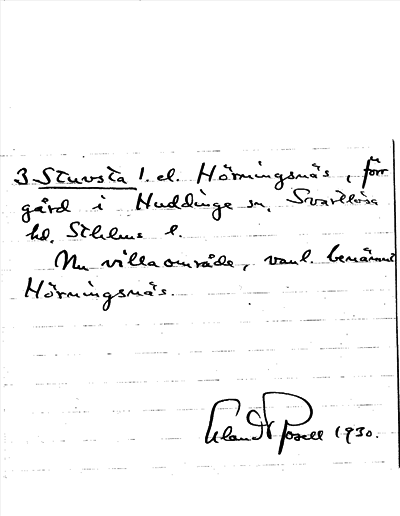 3 Stuvsta l. el. Hörningsnäs, förr
gård i Huddinge sn, Svartlösa
hd, Sthlms l.
Nu villaområde, vanl. benämnt
Hörningsnäs.
Erland Rosell 1930.